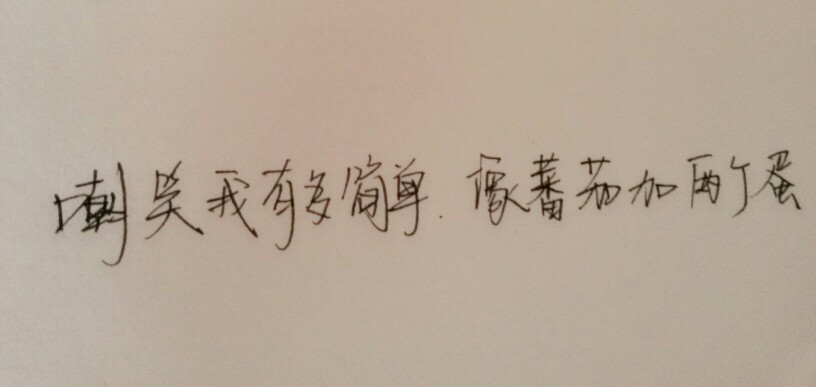 嘲笑我有多简单.像蕃茄加两个蛋